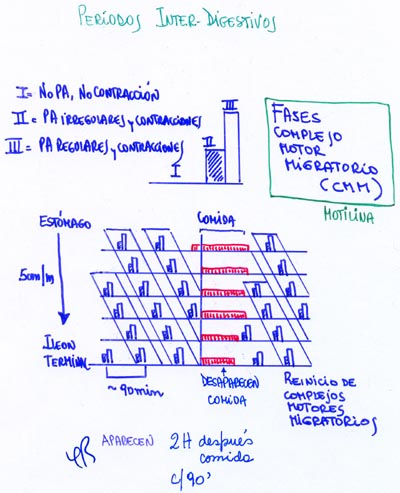 PERÍODOS INTER-DIGESTIVOS
I = NO PA, NO CONTRACCIÓN
II = PA IRREGULARES y CONTRACCIONES
III = PA REGULARES y CONTRACCIONES
I
II
III
FASES
COMPLEJO
MOTOR
MIGRATORIO
(CMM)
MOTILINA
ESTÓMAGO
COMIDA
5cm/m
ILEON
TERMINAL
~90min
DESAPARECEN
COMIDA
REINICIO DE
COMPLEJOS
MOTORES
MIGRATORIOS
APARECEN
2H después
comida
c/90'